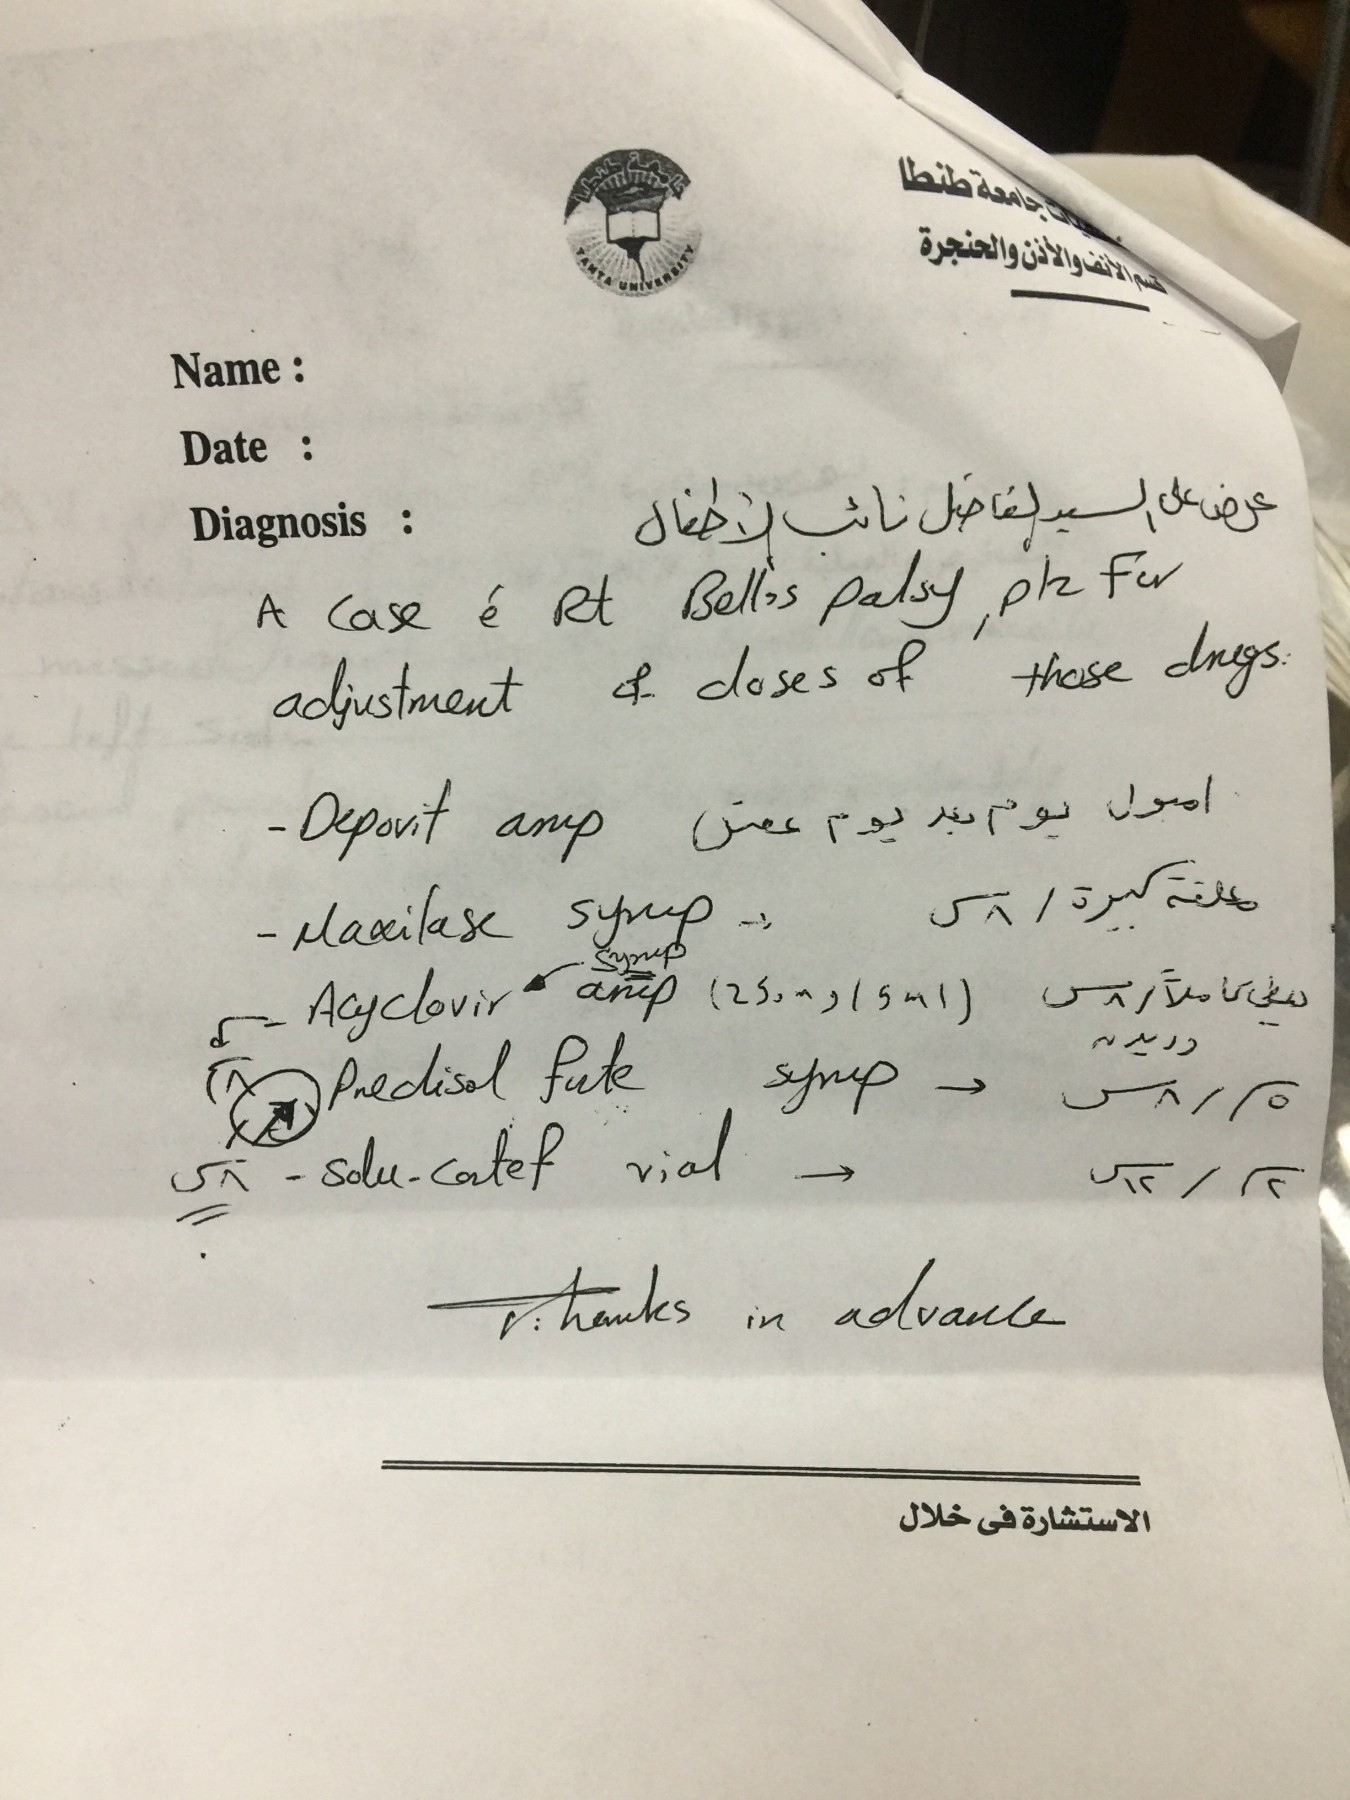 جامعة طنطا
قسم الأنف والأذن والحنجرة
TANTA UNIVERSITY
Name :
Date :
Diagnosis :
عرض على السيد الفاضل نائب الأطفال
A Case é Rt Bell's palsy, plz For
adjustment of doses of those drugs:
- Depovit amp امبول يوم بعد يوم عضل
- Maxilase syrup → معلقة كبيرة / ٨س
syrup
- Acyclovir amp (250mg/5ml) يعطى كاملاً / ٨س
وريد
Predisol forte syrup → ٥سم / ٨س
٨س - Solu-cortef vial → ٢سم / ١٢س
thanks in advance
الاستشارة فى خلال